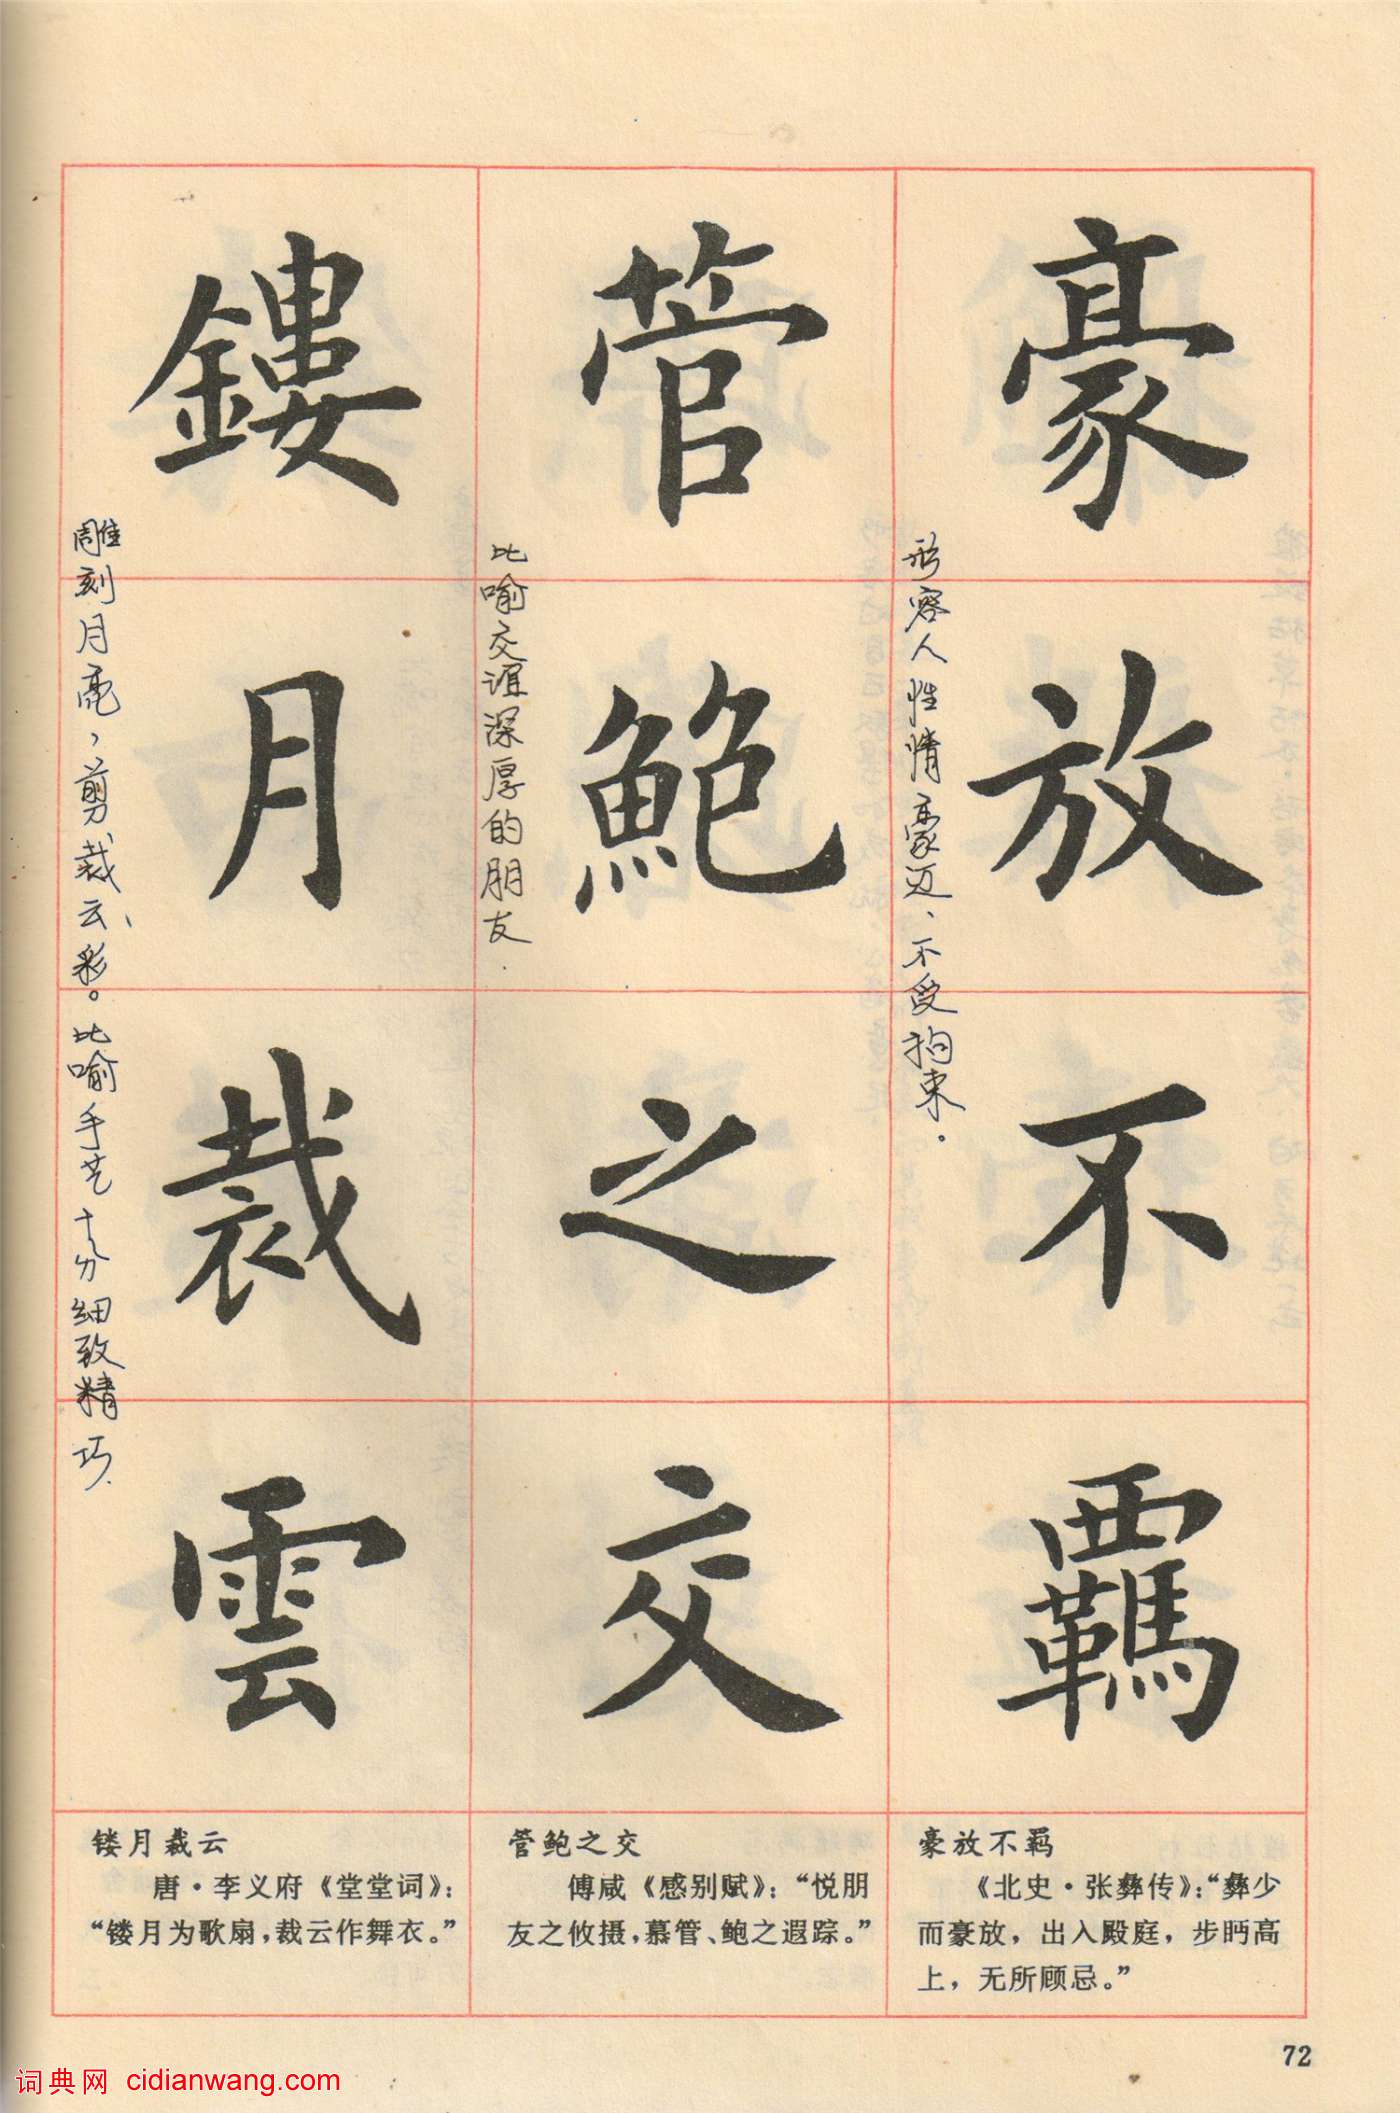 豪放不羈
形容人性情豪迈、不受拘束。
管鮑之交
比喻交谊深厚的朋友.
鏤月裁雲
雕刻月亮,剪裁云、彩。比喻手艺十分细致精巧.
豪放不羁
《北史·张彝传》:“彝少
而豪放,出入殿庭,步眄高
上,无所顾忌。”
管鲍之交
傅咸《感别赋》:“悦朋
友之攸摄,慕管、鲍之遐踪。”
镂月裁云
唐·李义府《堂堂词》:
“镂月为歌扇,裁云作舞衣。”
72
词典网 cidianwang.com